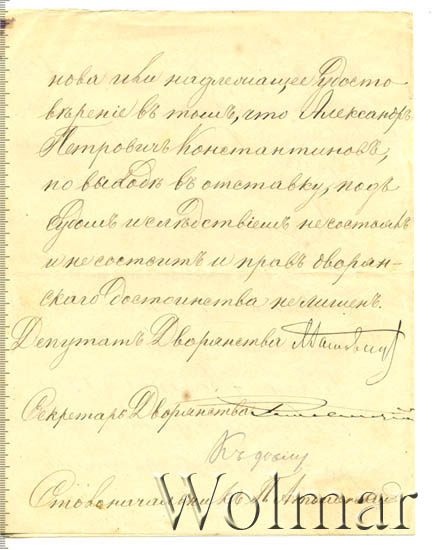 нова или надлежащее удосто
вѣреніе въ томъ, что Александръ
Петровичъ Константиновъ,
по выходѣ въ отставку, подъ
судомъ и слѣдствіемъ не состоялъ
и не состоитъ и правъ дворян-
скаго достоинства не лишенъ.
Депутатъ Дворянства
Секретарь Дворянства
Къ дѣлу
Столоначальникъ
Wolmar